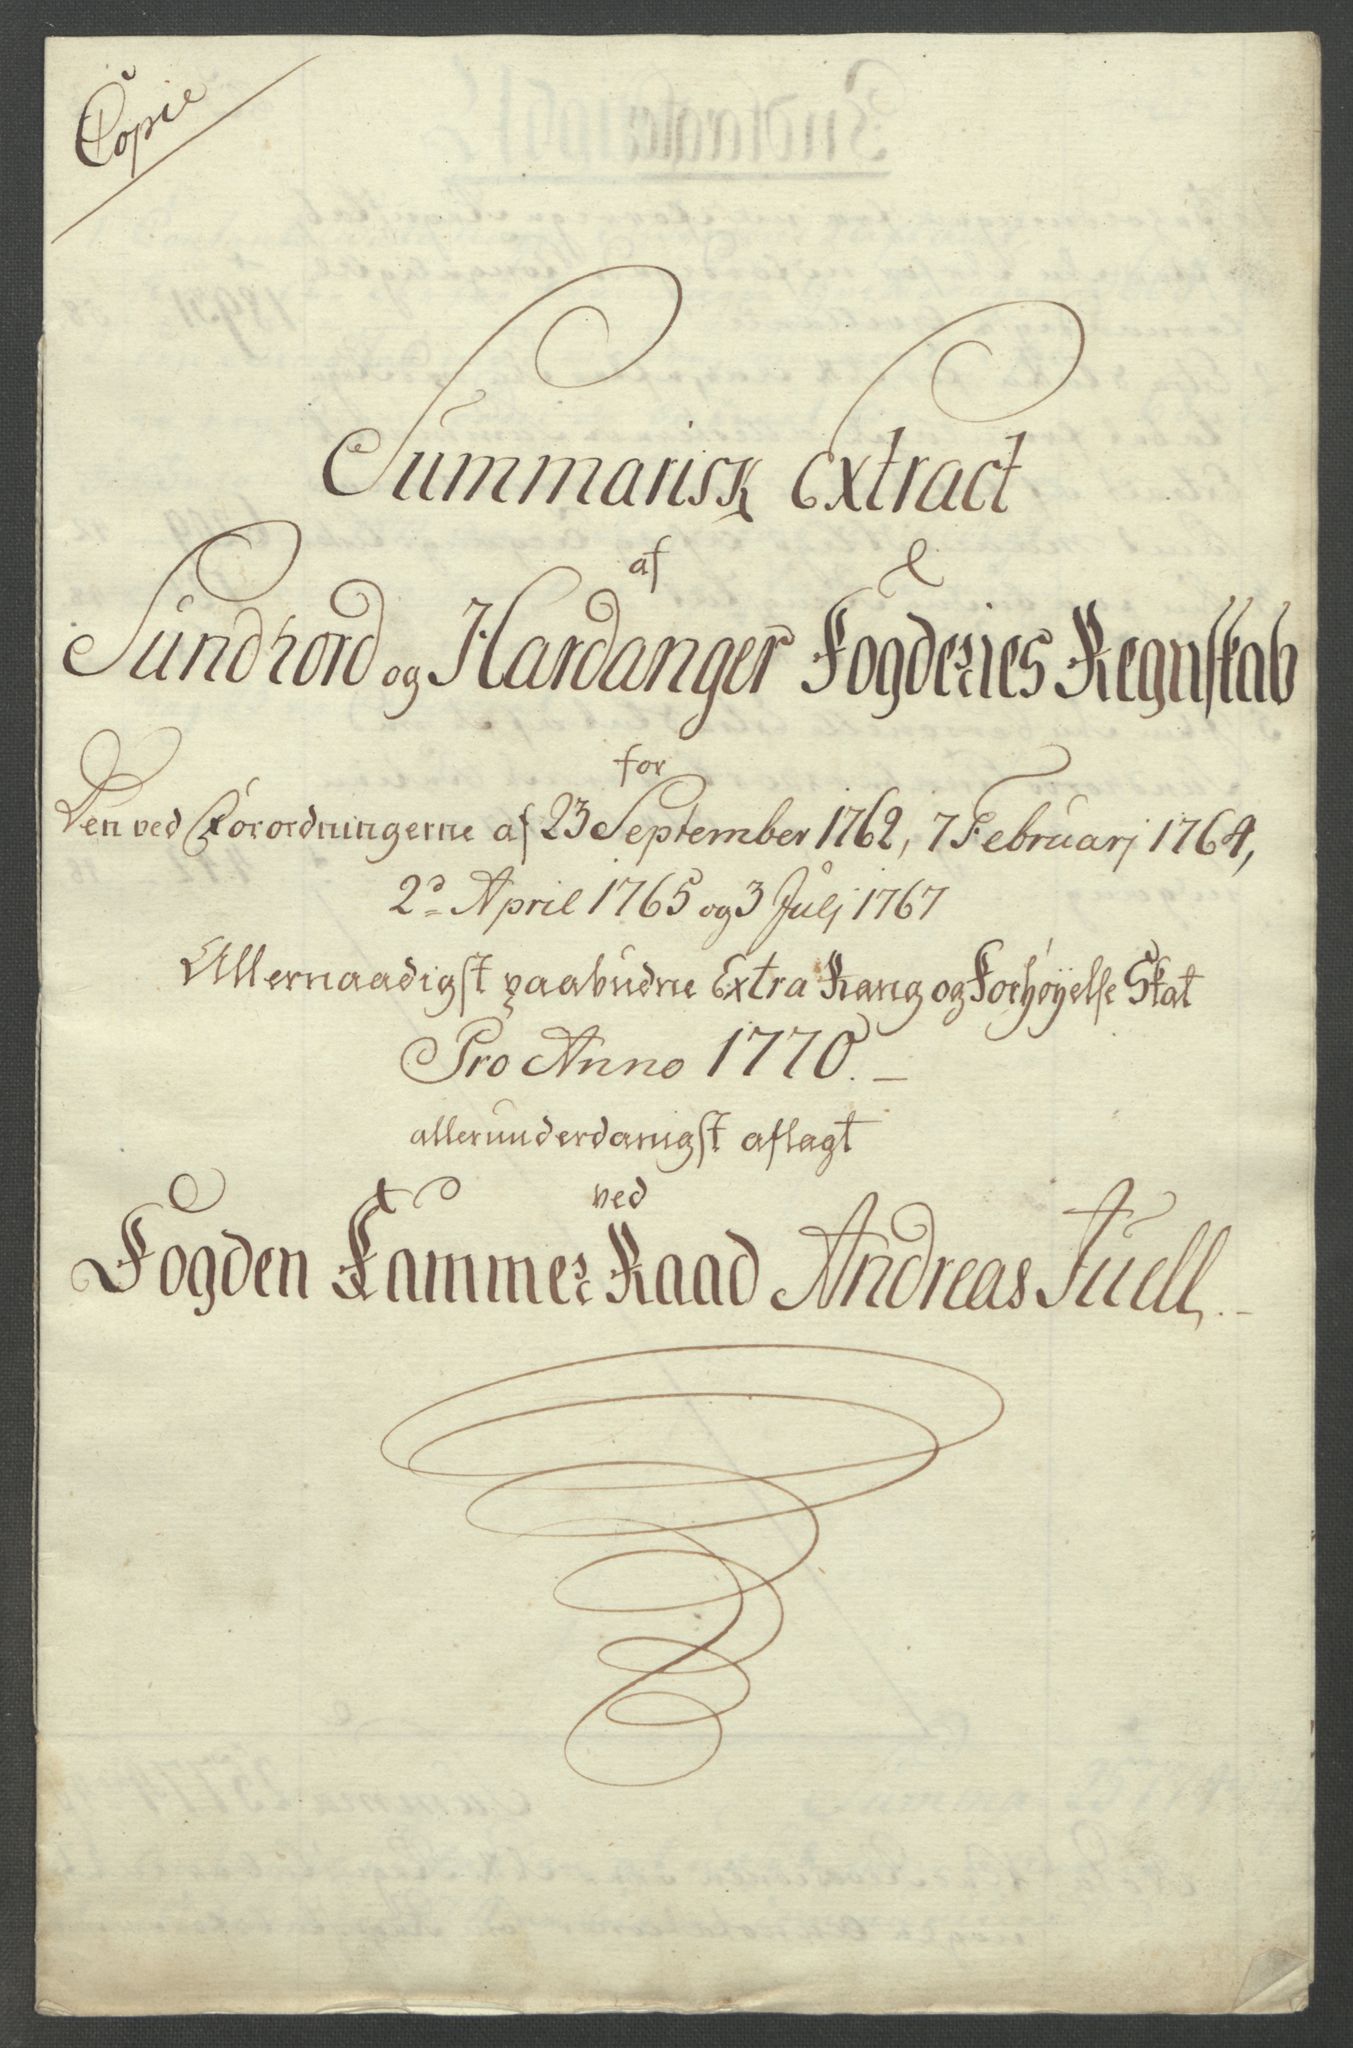 Copie
Summarisk Extract
af
Sundhord og Hardanger Fogderies Regnskab
for
Den ved Forordningerne af 23 September 1762, 7 Februarj 1764,
2d April 1765 og 3 Julj 1767
Allernaadigst paabudne Extra Rang og Forhøyelse Skat
Pro Anno 1770.
allerunderdanigst aflagt
ved
Fogden Kammer Raad Andreas Juell